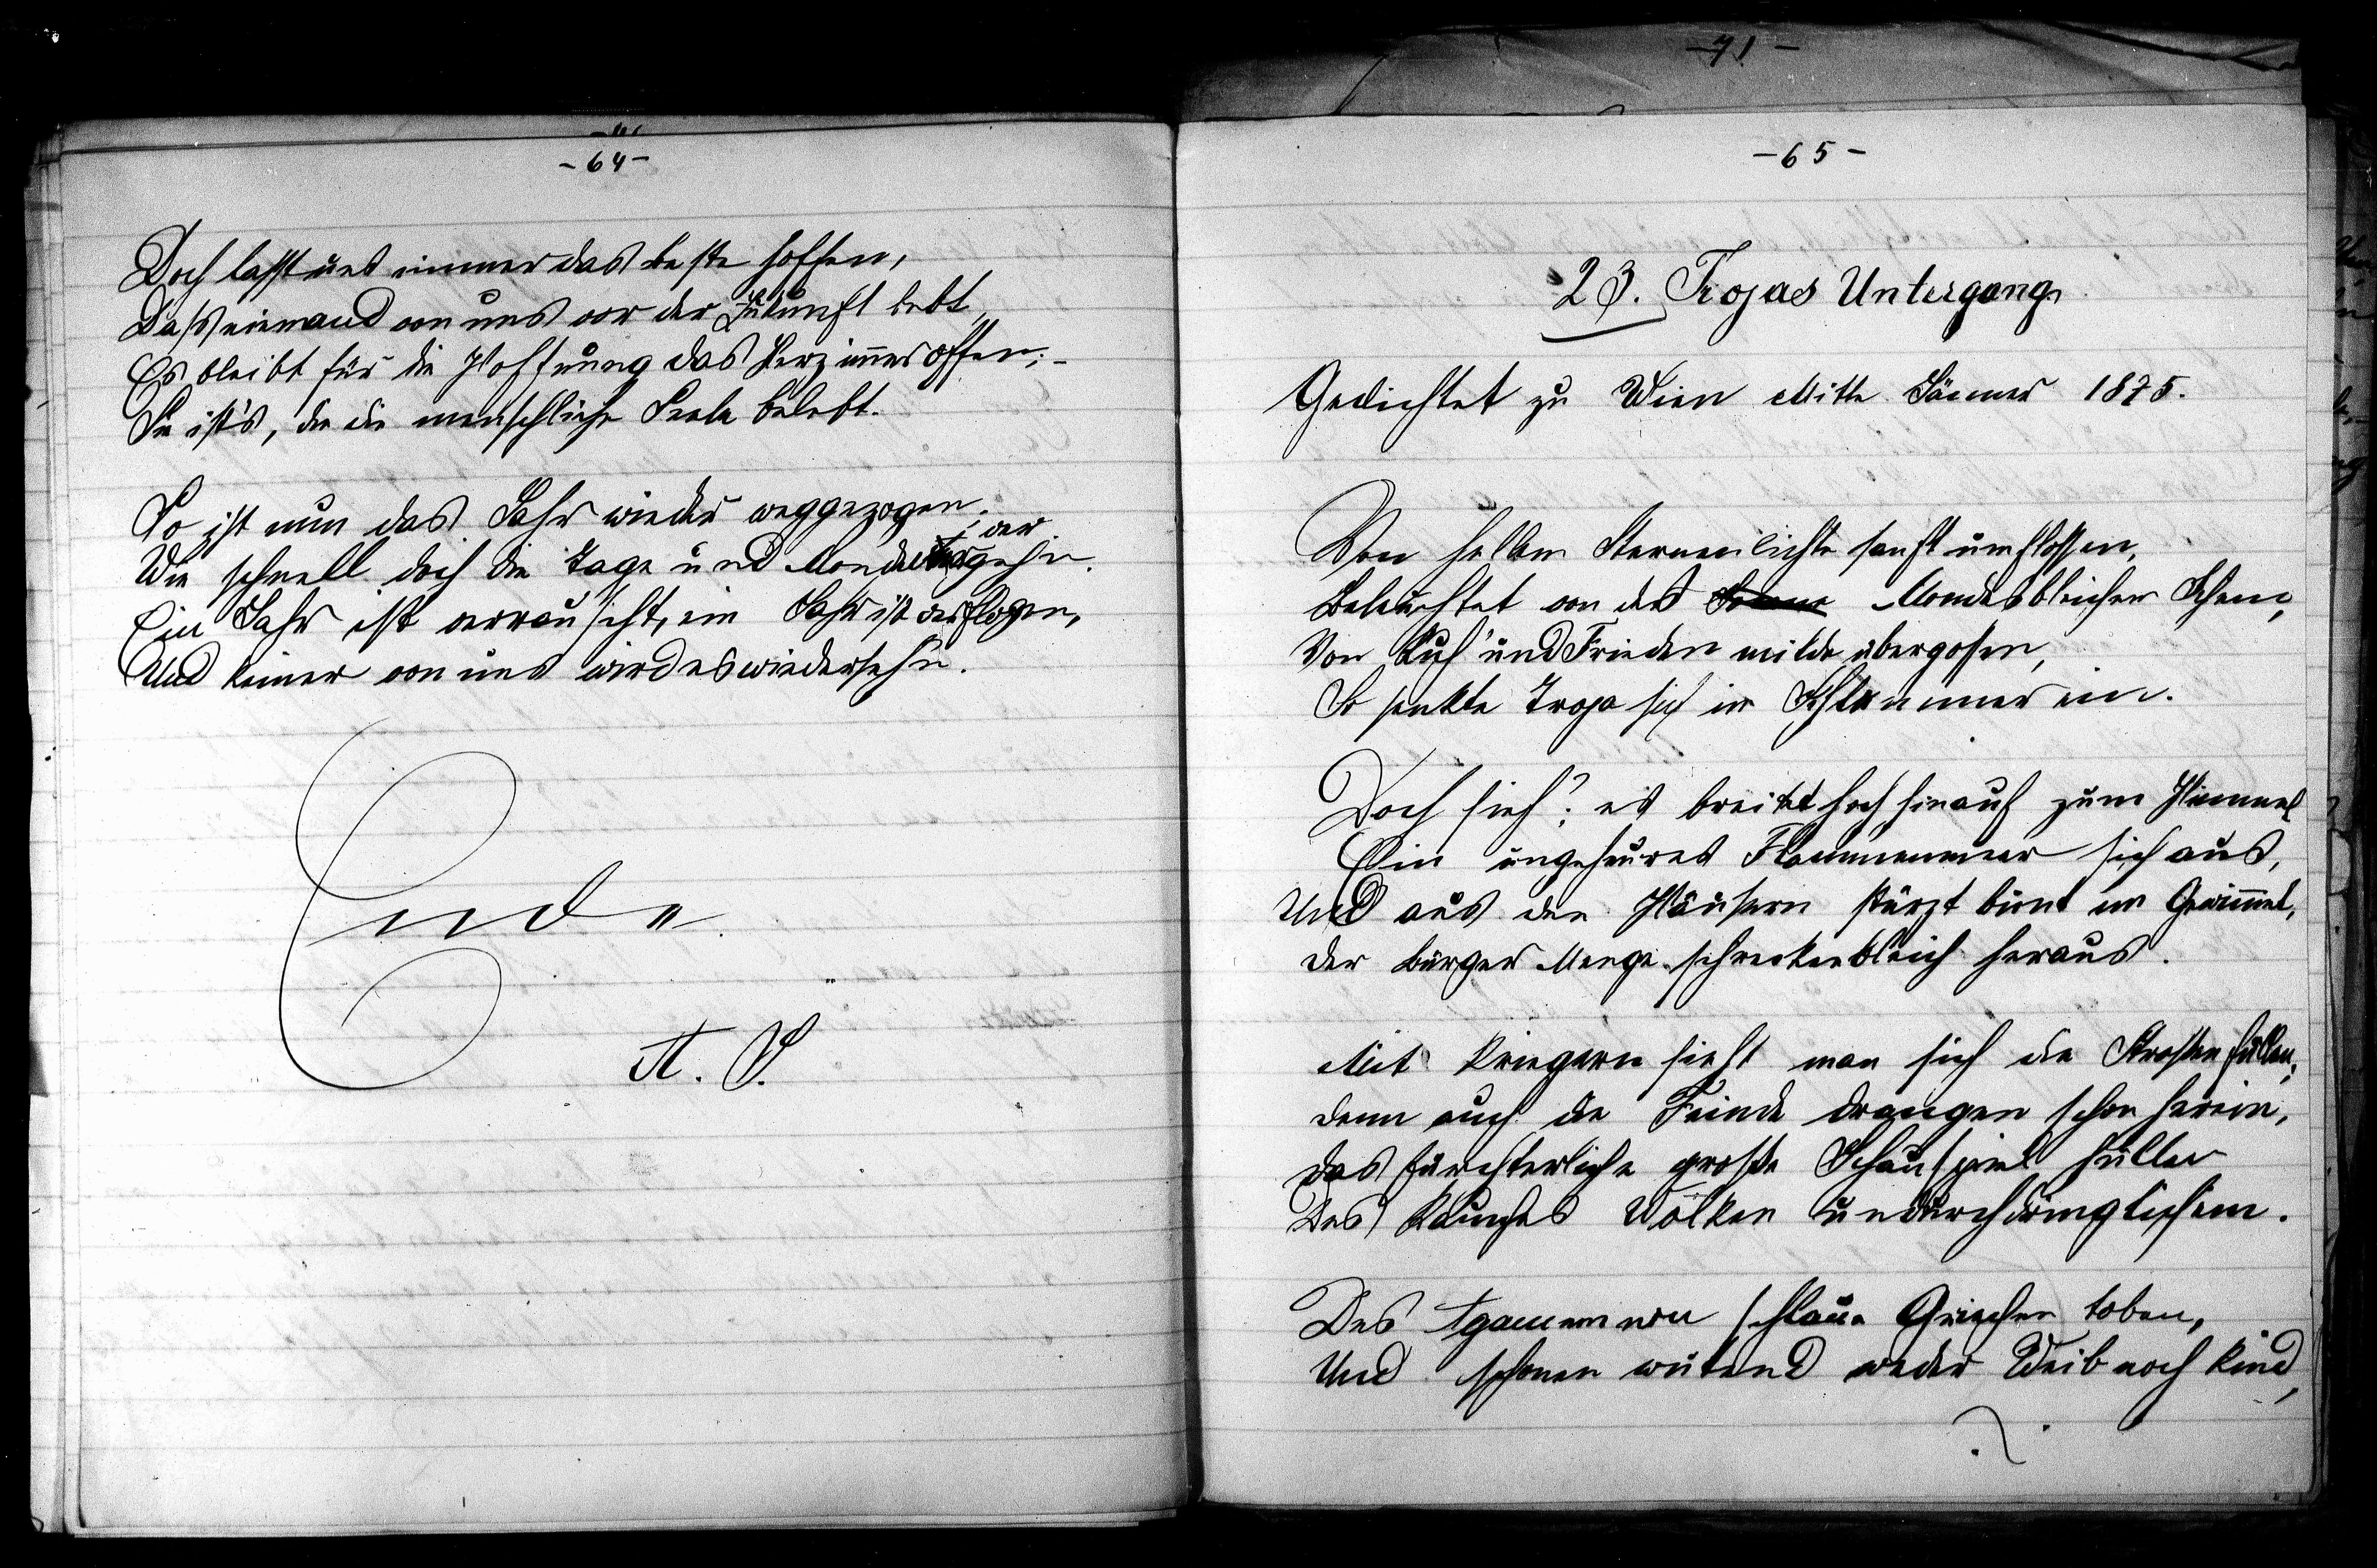 -64-
Doch laßt uns immer das beste hoffen,
Daß niemand von uns vor der Zukunft bebt,
Es bleibt für die Hoffnung das Herz immer offen; -
Sie ist's, die die menschliche Seele belebt.
So ist nun das Jahr wieder weggezogen;
Wie schnell doch die Tage und Monde vergehn.
Ein Jahr ist verrauscht, ein Jahr ist verflogen,
Und keiner von uns wird es wiedersehn.
Ende.
A. S.
-71-
-65-
23. Trojas Untergang
Gedichtet zu Wien Mitte Jänner 1875.
Von hellem Sternenlichte sanft umflossen,
Beleuchtet von des Mondes bleichem Schein,
Von Ruh' und Frieden milde übergossen,
So senkte Troja sich in Schlummer ein.
Doch sieh! es breitet hoch hinauf zum Himmel
Ein ungeheures Flammenmeer sich aus,
Und aus den Häusern stürzt bunt im Gewimmel,
der Bürger Menge schreckenbleich heraus.
Mit Kriegern sieht man sich die Straßen füllen,
denn auch die Feinde drangen schon herein,
das fürchterliche große Schauspiel hüllen
Des Rauches Wolken undurchdringlich ein.
Des Agamemnon schlaue Griechen toben,
Und schonen wütend weder Weib noch Kind,